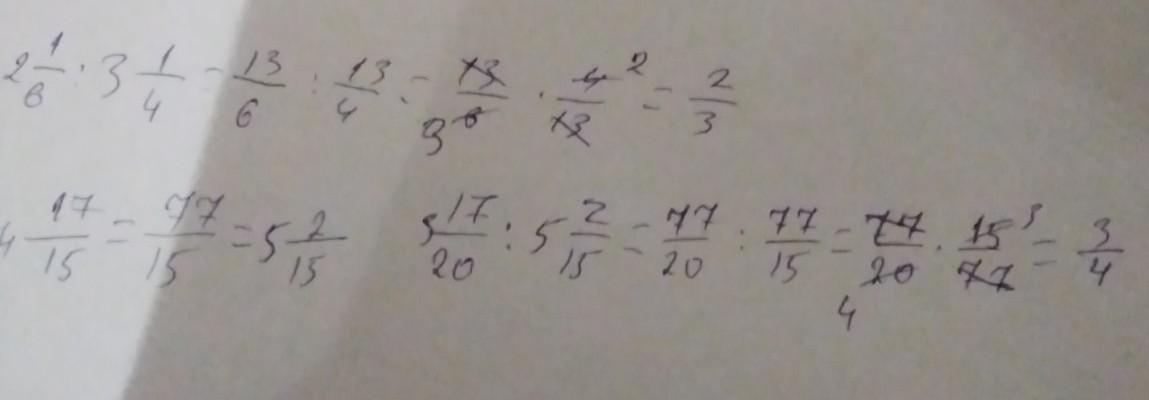 2 1/6 : 3 1/4 = 13/6 : 13/4 = 13/6 3 · 4/13 2 = 2/3
4 17/15 = 77/15 = 5 2/15 3 17/20 : 5 2/15 = 77/20 : 77/15 = 77/20 4 · 15/77 3 = 3/4